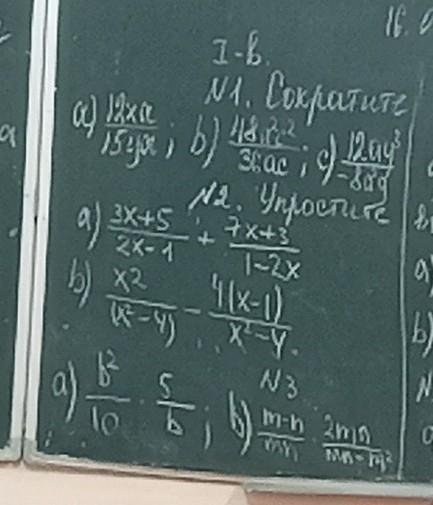 16.
I-в.
N1. Сократите
a) \frac{12xa}{15ya}; b) \frac{48}{36ac}; c) \frac{12ay^3}{-8ay}
N2. Упростите
a) \frac{3x+5}{2x-1} + \frac{7x+3}{1-2x}
b) \frac{x2}{(x^2-4)} - \frac{4(x-1)}{x^2-4}.
N3
a) \frac{b^2}{10} \cdot \frac{5}{b}; b) \frac{m-n}{mn} \cdot \frac{2mn}{mn-m^2}